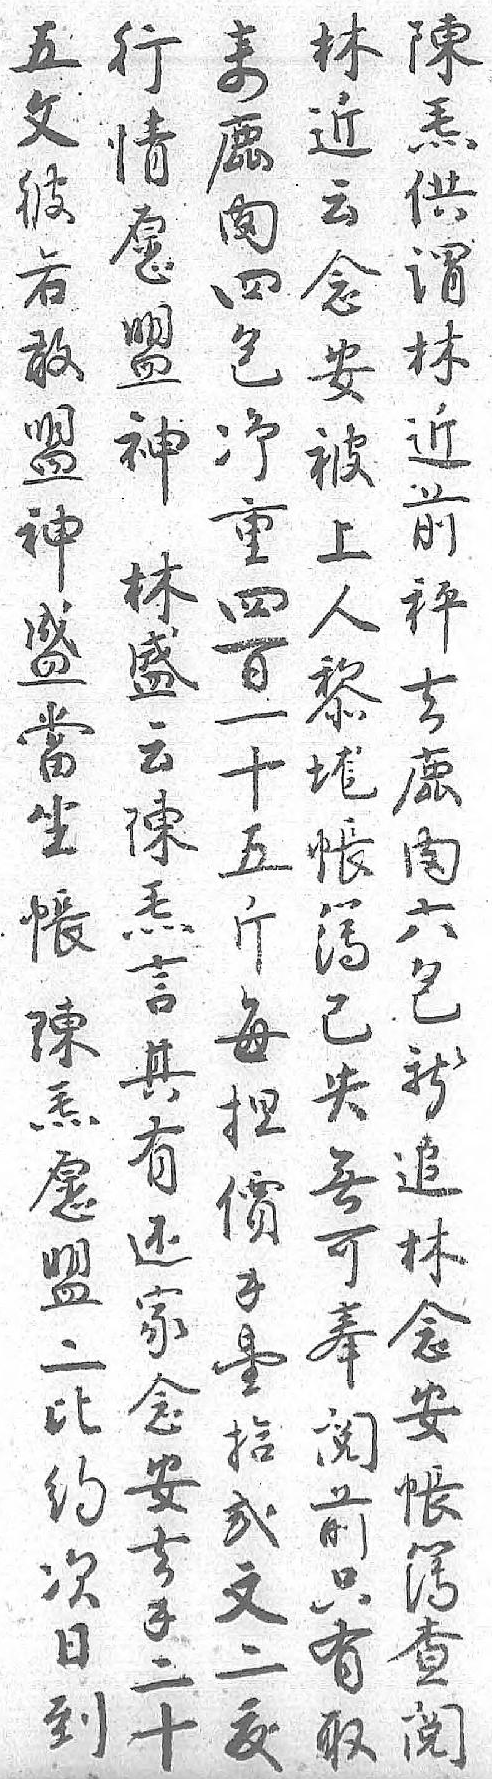 陳炁供謂林近前秤去鹿肉六包託追林念安帳簿查閱
林近云念安被上人黎垅帳簿已失無可奉閱前只有取
来鹿肉四包净重四百一十五斤每担價钅壹拾弍文二交
行情愿盟神 林盛云陳炁言其有还家念安去钅二十
五文彼若敢盟神盛當坐帳陳炁愿盟二比約次日到